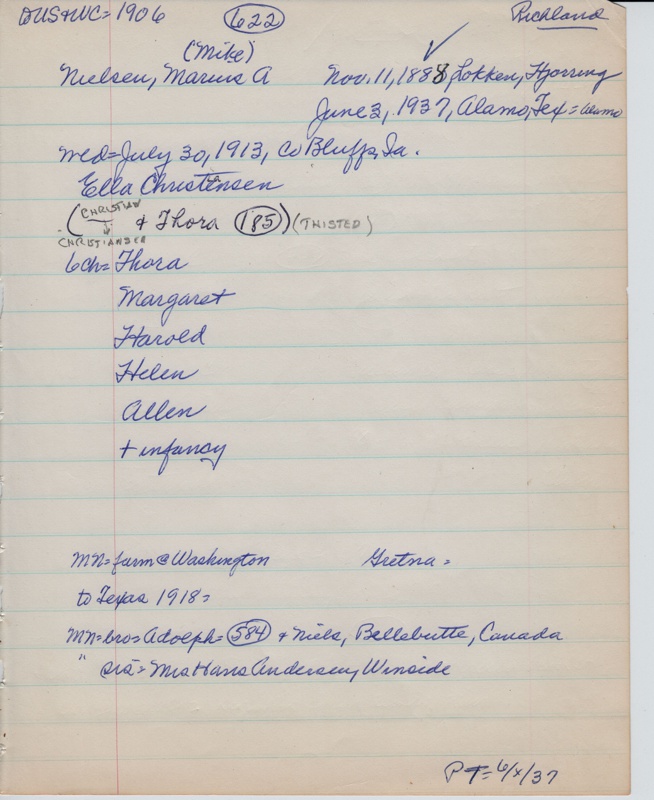 DUS+WC=1906 (622) Richland
(Mike)
Nielsen, Marius A Nov. 11, 1888, Lokken, Hjorring
June 3, 1937, Alamo, Tex = Alamo
Med=July 30, 1913, Co Bluffs, Ia.
Ella Christensen
(CHRISTIAN + Thora (185)) (THISTED)
CHRISTIANSEN
6ch= Thora
Margaret
Harold
Helen
Allen
+ infancy
MN= farm @ Washington Gretna=
to Texas 1918=
MN=bro=Adolph= (584) + Niels, Bellebutte, Canada
" sis= Mrs Hans Andersen, Winside
PT= 6/x/37